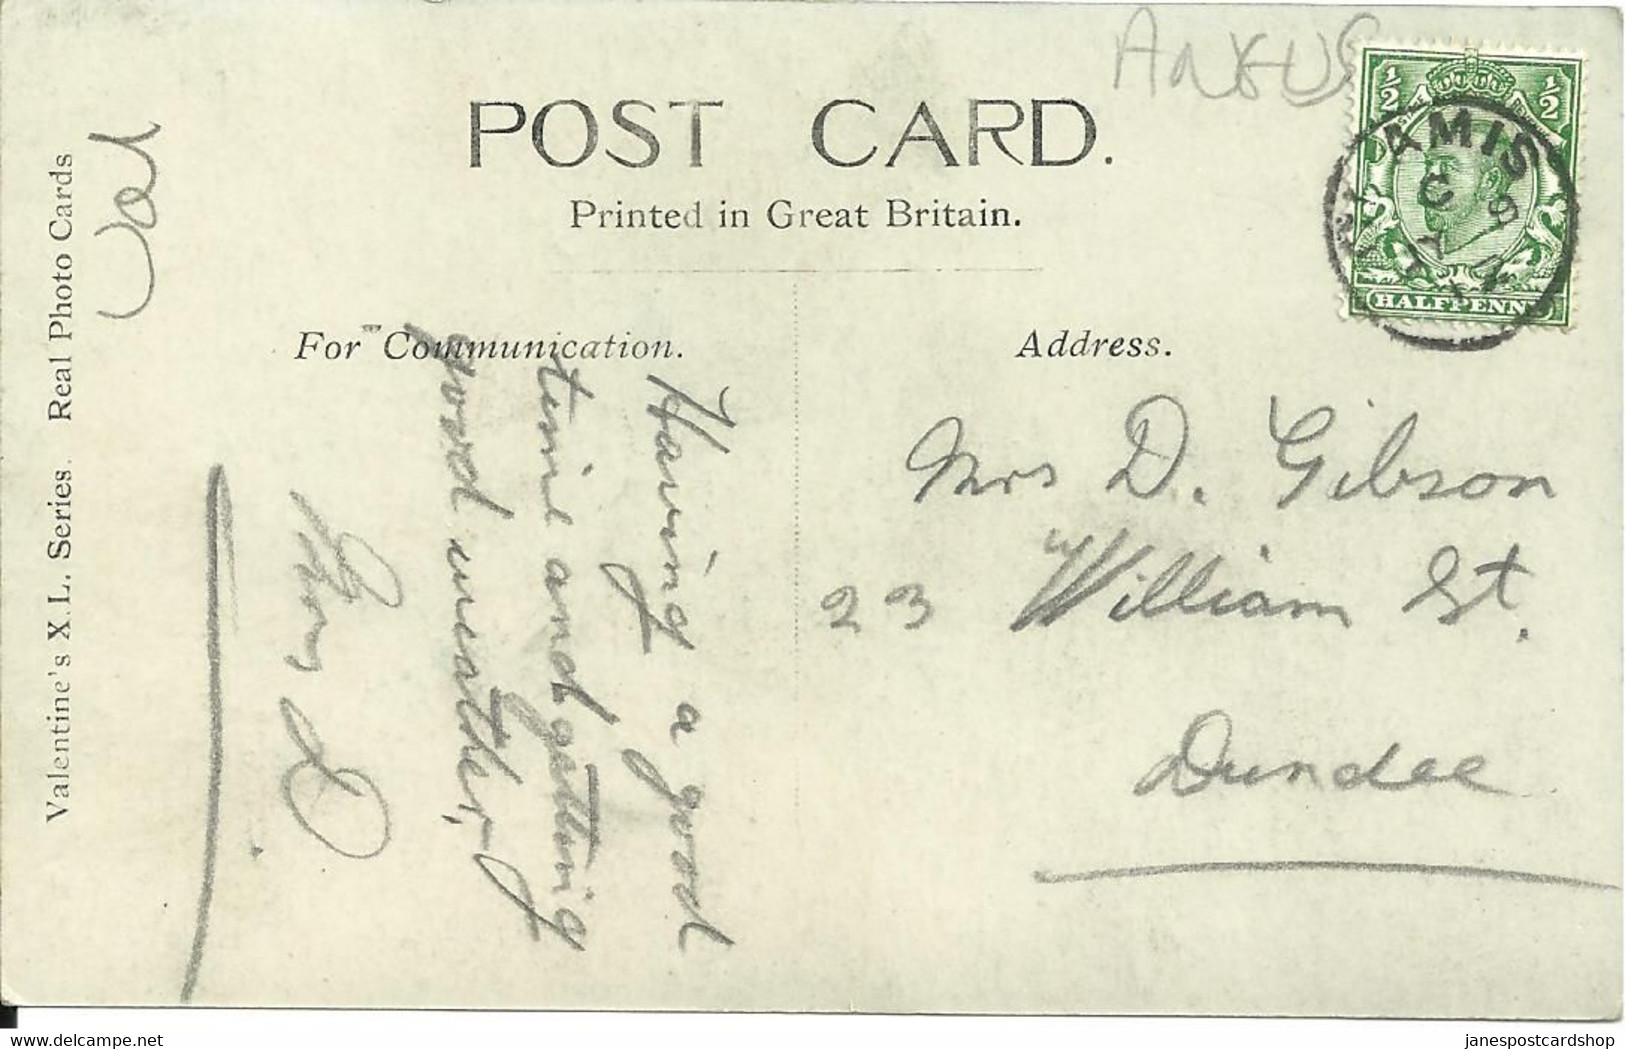 POST CARD.
Printed in Great Britain.
For Communication.
Address.
Valentine's X.L. Series. Real Photo Cards
Angus
AMIS
C
9
½ ½
HALFPENNY
Having a good
time and getting
good weather,
D.
Mrs D. Gibson
23 William St.
Dundee
delcampe.net
janespostcardshop